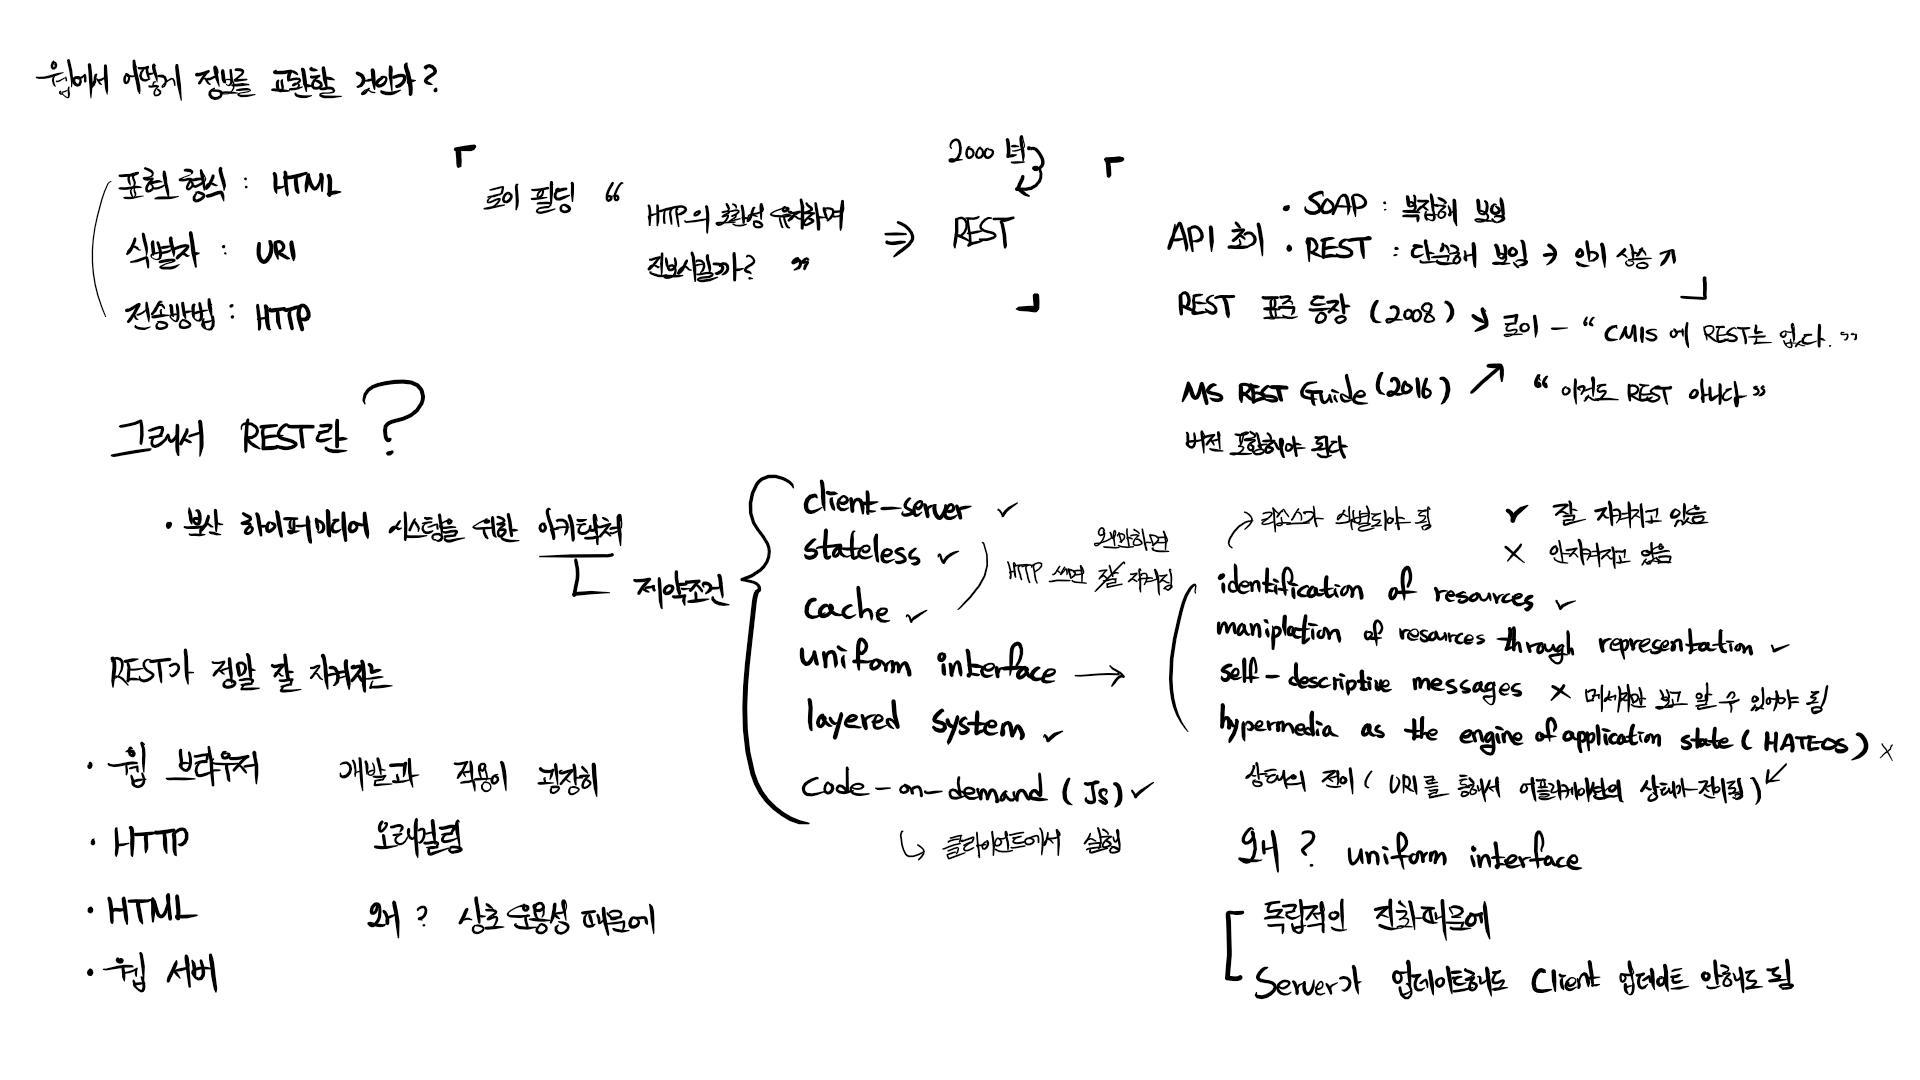 웹에서 어떻게 정보를 교환할 것인가?
표현 형식 : HTML
식별자 : URI
전송방법 : HTTP
로이 필딩 “ HTTP의 호환성 유지하며
진보시킬까? ”
⇒ REST
2000 년
API 초기
• SOAP : 복잡해 보임
• REST : 단순해 보임 → 인기 상승 ↗
REST 표준 등장 (2008) ↘ 로이 - “ CMIS 에 REST는 없다. ”
MS REST Guide (2016) ↗ “ 이것도 REST 아니다 ”
버전 포함해야 된다
그래서 REST란 ?
• 분산 하이퍼미디어 시스템을 위한 아키텍쳐
제약조건
client-server ✓
stateless ✓
cache ✓
왠만하면
HTTP 쓰면 잘 지켜짐
uniform interface →
layered system ✓
code-on-demand (Js) ✓
↳ 클라이언트에서 실행
리소스가 식별되야 됨
✓ 잘 지켜지고 있음
X 안지켜지고 있음
identification of resources ✓
maniplation of resources through representation ✓
self-descriptive messages X 메세지만 보고 알 수 있어야 됨
hypermedia as the engine of application state (HATEOS) X
상태의 전이 ( URI를 통해서 어플리케이션의 상태가 전이됨 )
왜 ? uniform interface
독립적인 진화때문에
Server가 업데이트해도 Client 업데이트 안해도 됨
REST가 정말 잘 지켜지는
• 웹 브라우저
• HTTP
• HTML
• 웹 서버
개발과 적용이 굉장히
오래걸림
왜 ? 상호 운용성 때문에